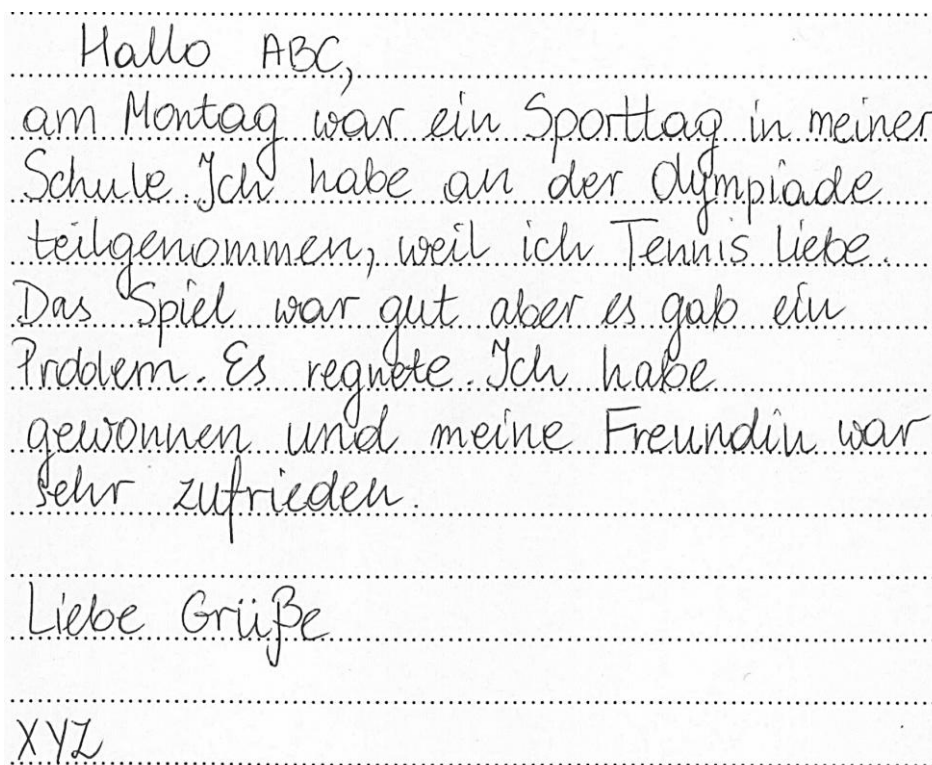 Hallo ABC,
am Montag war ein Sporttag in meiner
Schule. Ich habe an der Olympiade
teilgenommen, weil ich Tennis liebe.
Das Spiel war gut aber es gab ein
Problem. Es regnete. Ich habe
gewonnen und meine Freundin war
sehr zufrieden.
Liebe Grüße
XYZ